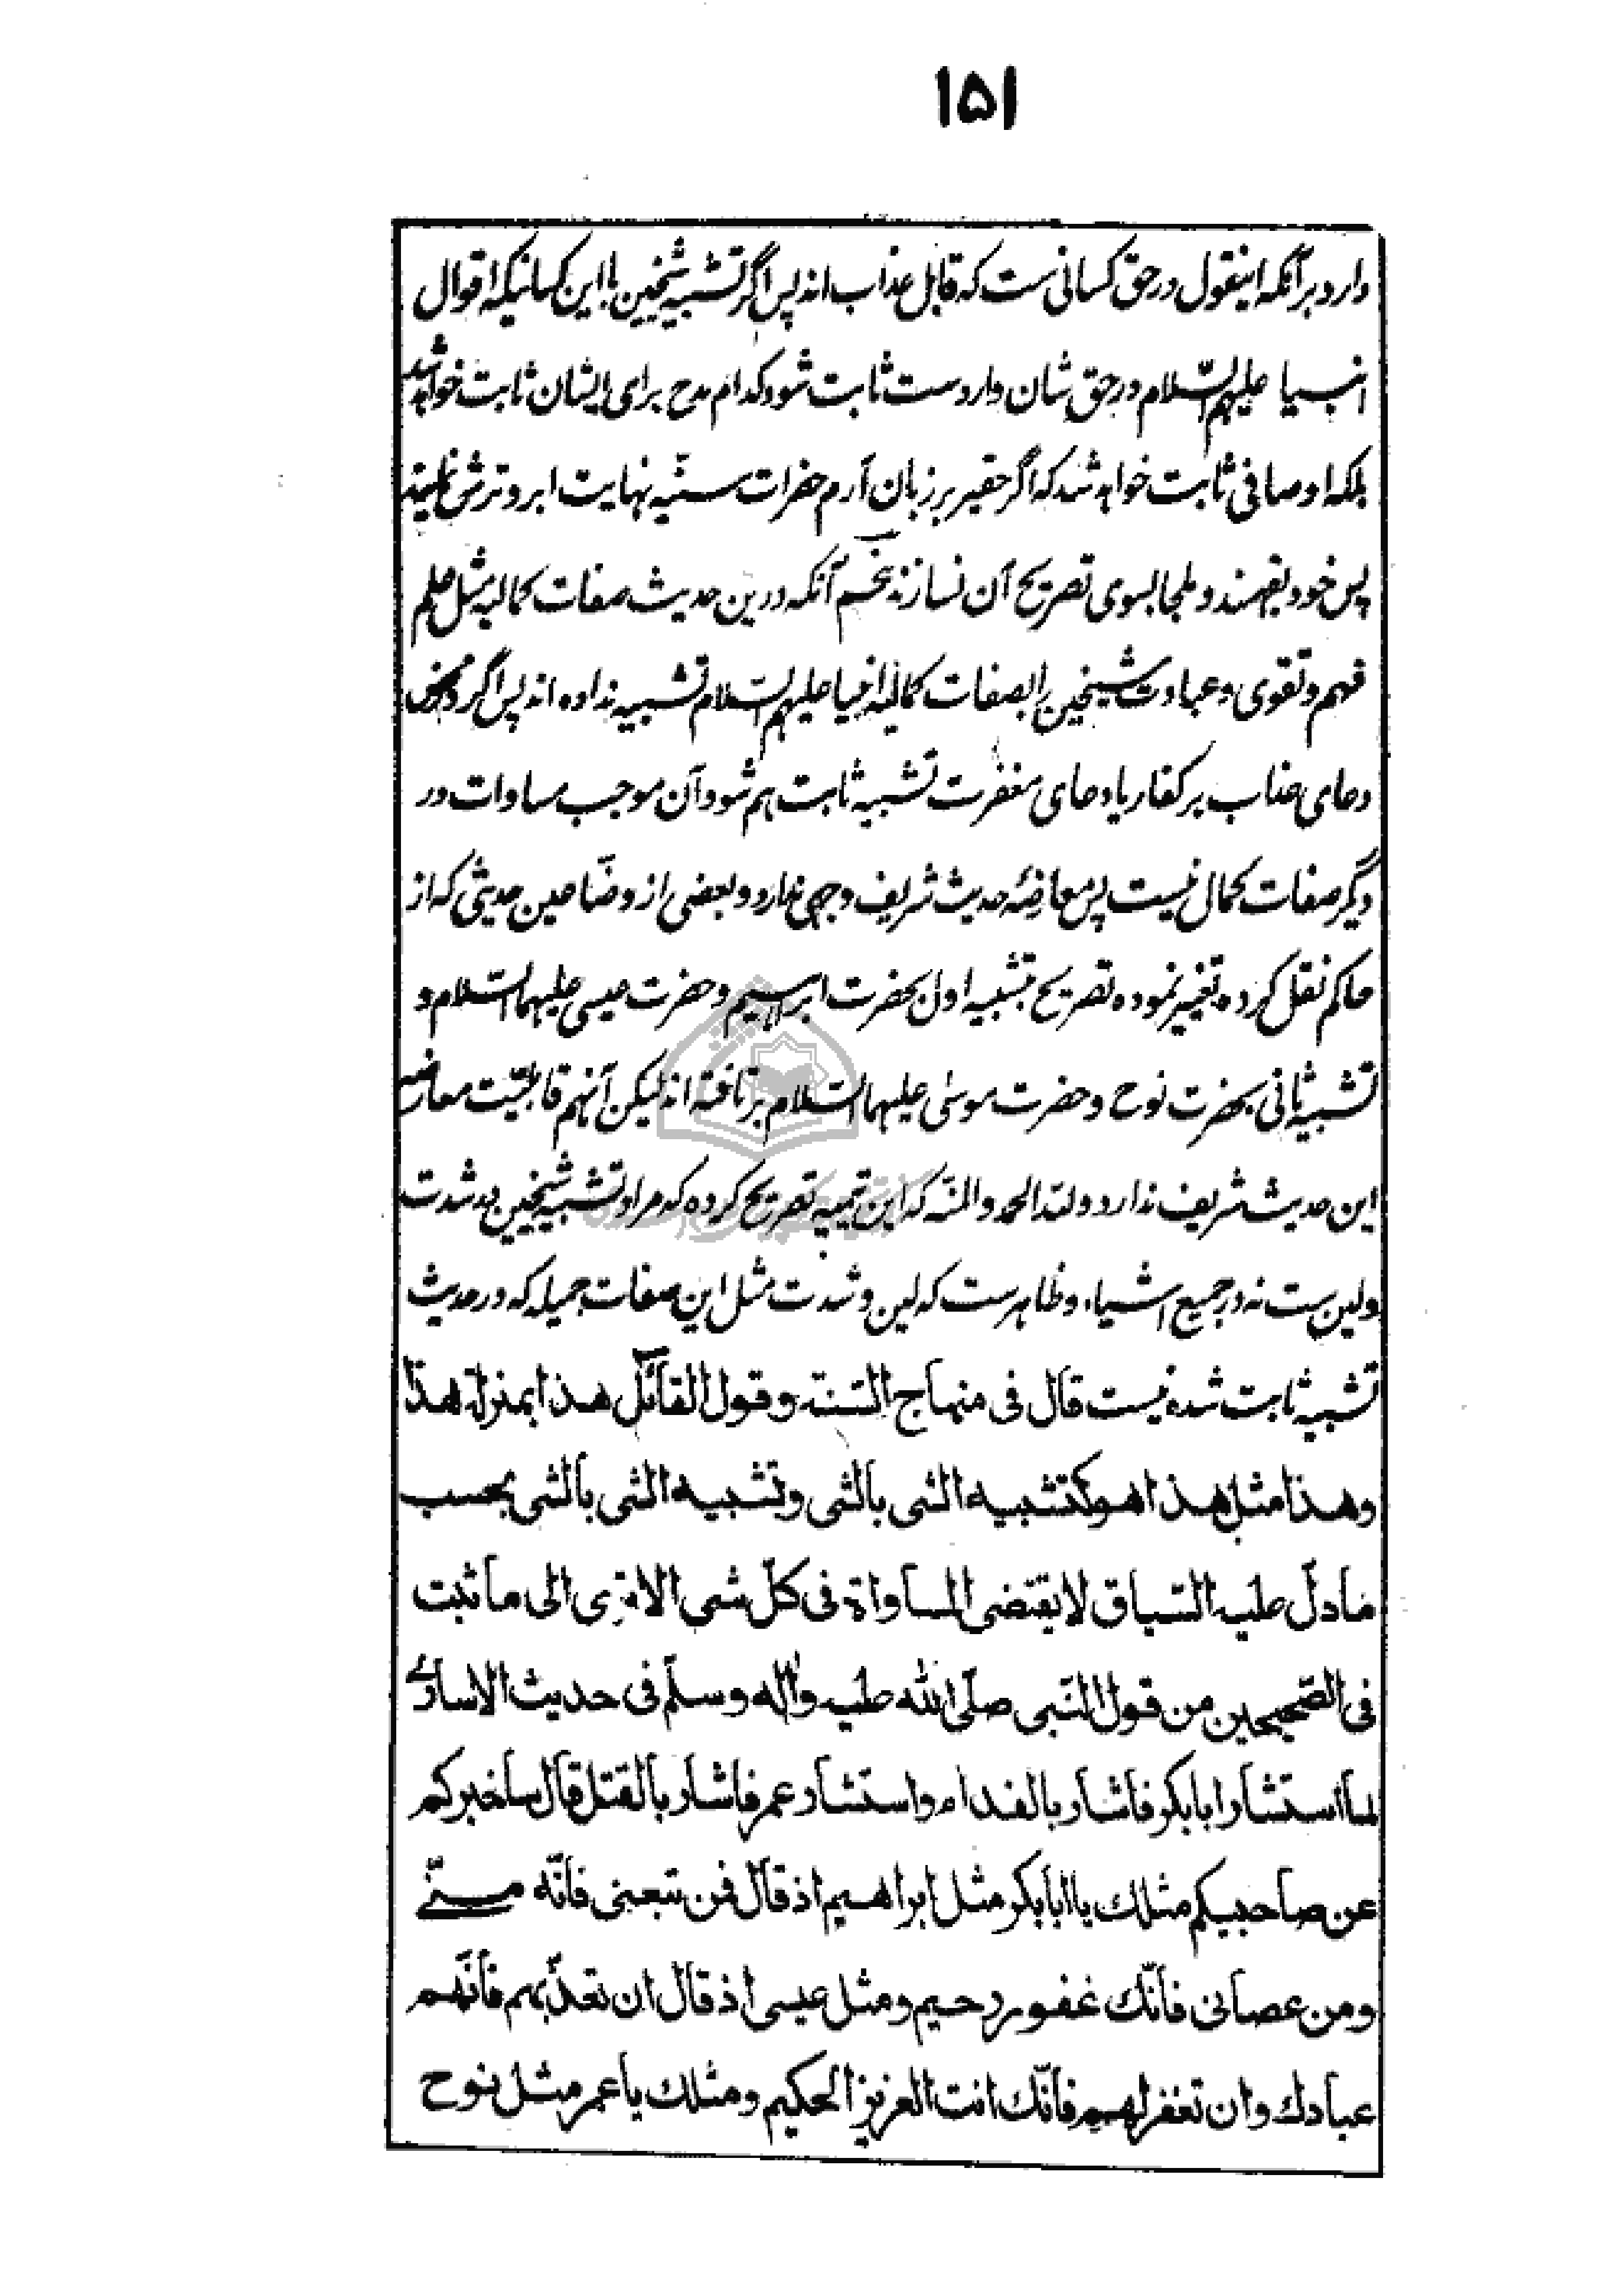 ۱۵۱
دارد بر آنکه اینقول در حق کسانی ست که قابل عذاب اند پس اگر تشبیه شیخین با این کسانیکه اقوال
انبیا علیهم السّلام در حق شان وارد ست ثابت شود کدام مدح برای ایشان ثابت خواهد شد
بلکه اوصافی ثابت خواهد شد که اگر حقیر بر زبان آرم حضرات سنّیه نهایت ابرو ترش نمایند
پس خود بفهمند و ملجا بسوی تصریح آن نسازند پنجم آنکه درین حدیث صفات کمالیه مثل علم
فهم و تقوی و عبادت شیخین را بصفات کمالیه انبیا علیهم السّلام تشبیه نداده اند پس اگر در محض
دعای عذاب بر کفار یا دعای مغفرت تشبیه ثابت هم شود آن موجب مساوات در
دیگر صفات کمال نیست پس معارضهٔ حدیث شریف وجهی ندارد و بعضی از وضّاعین حدیثی که از
حاکم نقل کرده تغییر نموده تصریح بتشبیه اول بحضرت ابراهیم و حضرت عیسی علیهما السّلام و
تشبیه ثانی بحضرت نوح و حضرت موسی علیهما السّلام بر تافته اند لیکن آنهم قابلیّت معارضه
این حدیث شریف ندارد و للّه الحمد و المنّه که ابن تیمیه تصریح کرده که مراد تشبیه شیخین در شدت
و لین ست نه در جمیع اشیاء و ظاهر ست که لین و شدت مثل این صفات جمیله که در حدیث
تشبیه ثابت شده نیست قال فی منهاج السّنة و قول القائل هذا بمنزلة هذا
وهذا مثل هذا هو کتشبیه الشی بالشی وتشبیه الشی بالشی بحسب
ما دلّ علیه السّیاق لا یقتضی المساواة فی کلّ شی الا تری الی ما ثبت
فی الصّحیحین من قول النّبی صلّی الله علیه وآله وسلّم فی حدیث الاساری
لما استشار ابابکر فاشار بالفداء واستشار عمر فاشار بالقتل قال ساخبرکم
عن صاحبیکم مثلک یا ابابکر مثل ابراهیم اذ قال فمن تبعنی فانّه منّی
ومن عصانی فانّک غفور رحیم ومثل عیسی اذ قال ان تعذّبهم فانّهم
عبادک وان تغفر لهم فانّک انت العزیز الحکیم ومثلک یا عمر مثل نوح